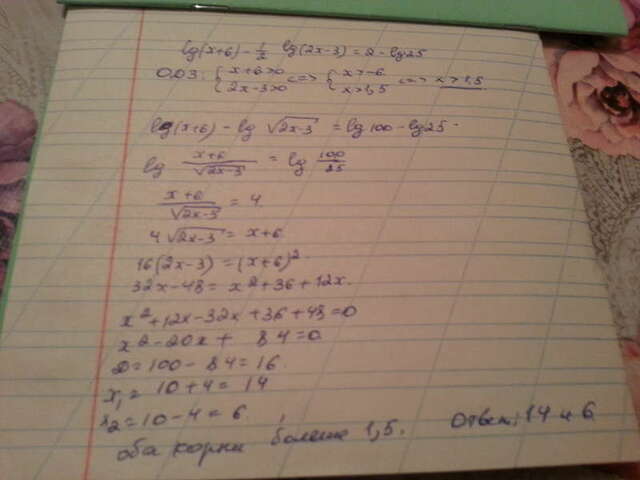 lg(x+6) - 1/2 lg(2x-3) = 2 - lg25
ОДЗ: { x+6>0 <=> { x>-6 <=> x>1,5
{ 2x-3>0 { x>1,5
lg(x+6) - lg √(2x-3) = lg100 - lg25
lg (x+6)/√(2x-3) = lg 100/25
(x+6)/√(2x-3) = 4
4√(2x-3) = x+6
16(2x-3) = (x+6)²
32x-48 = x²+36+12x
x²+12x-32x+36+48=0
x²-20x+ 84=0
D=100-84=16.
x₁= 10+4= 14
x₂=10-4=6.
оба корни больше 1,5. Ответ: 14 и 6